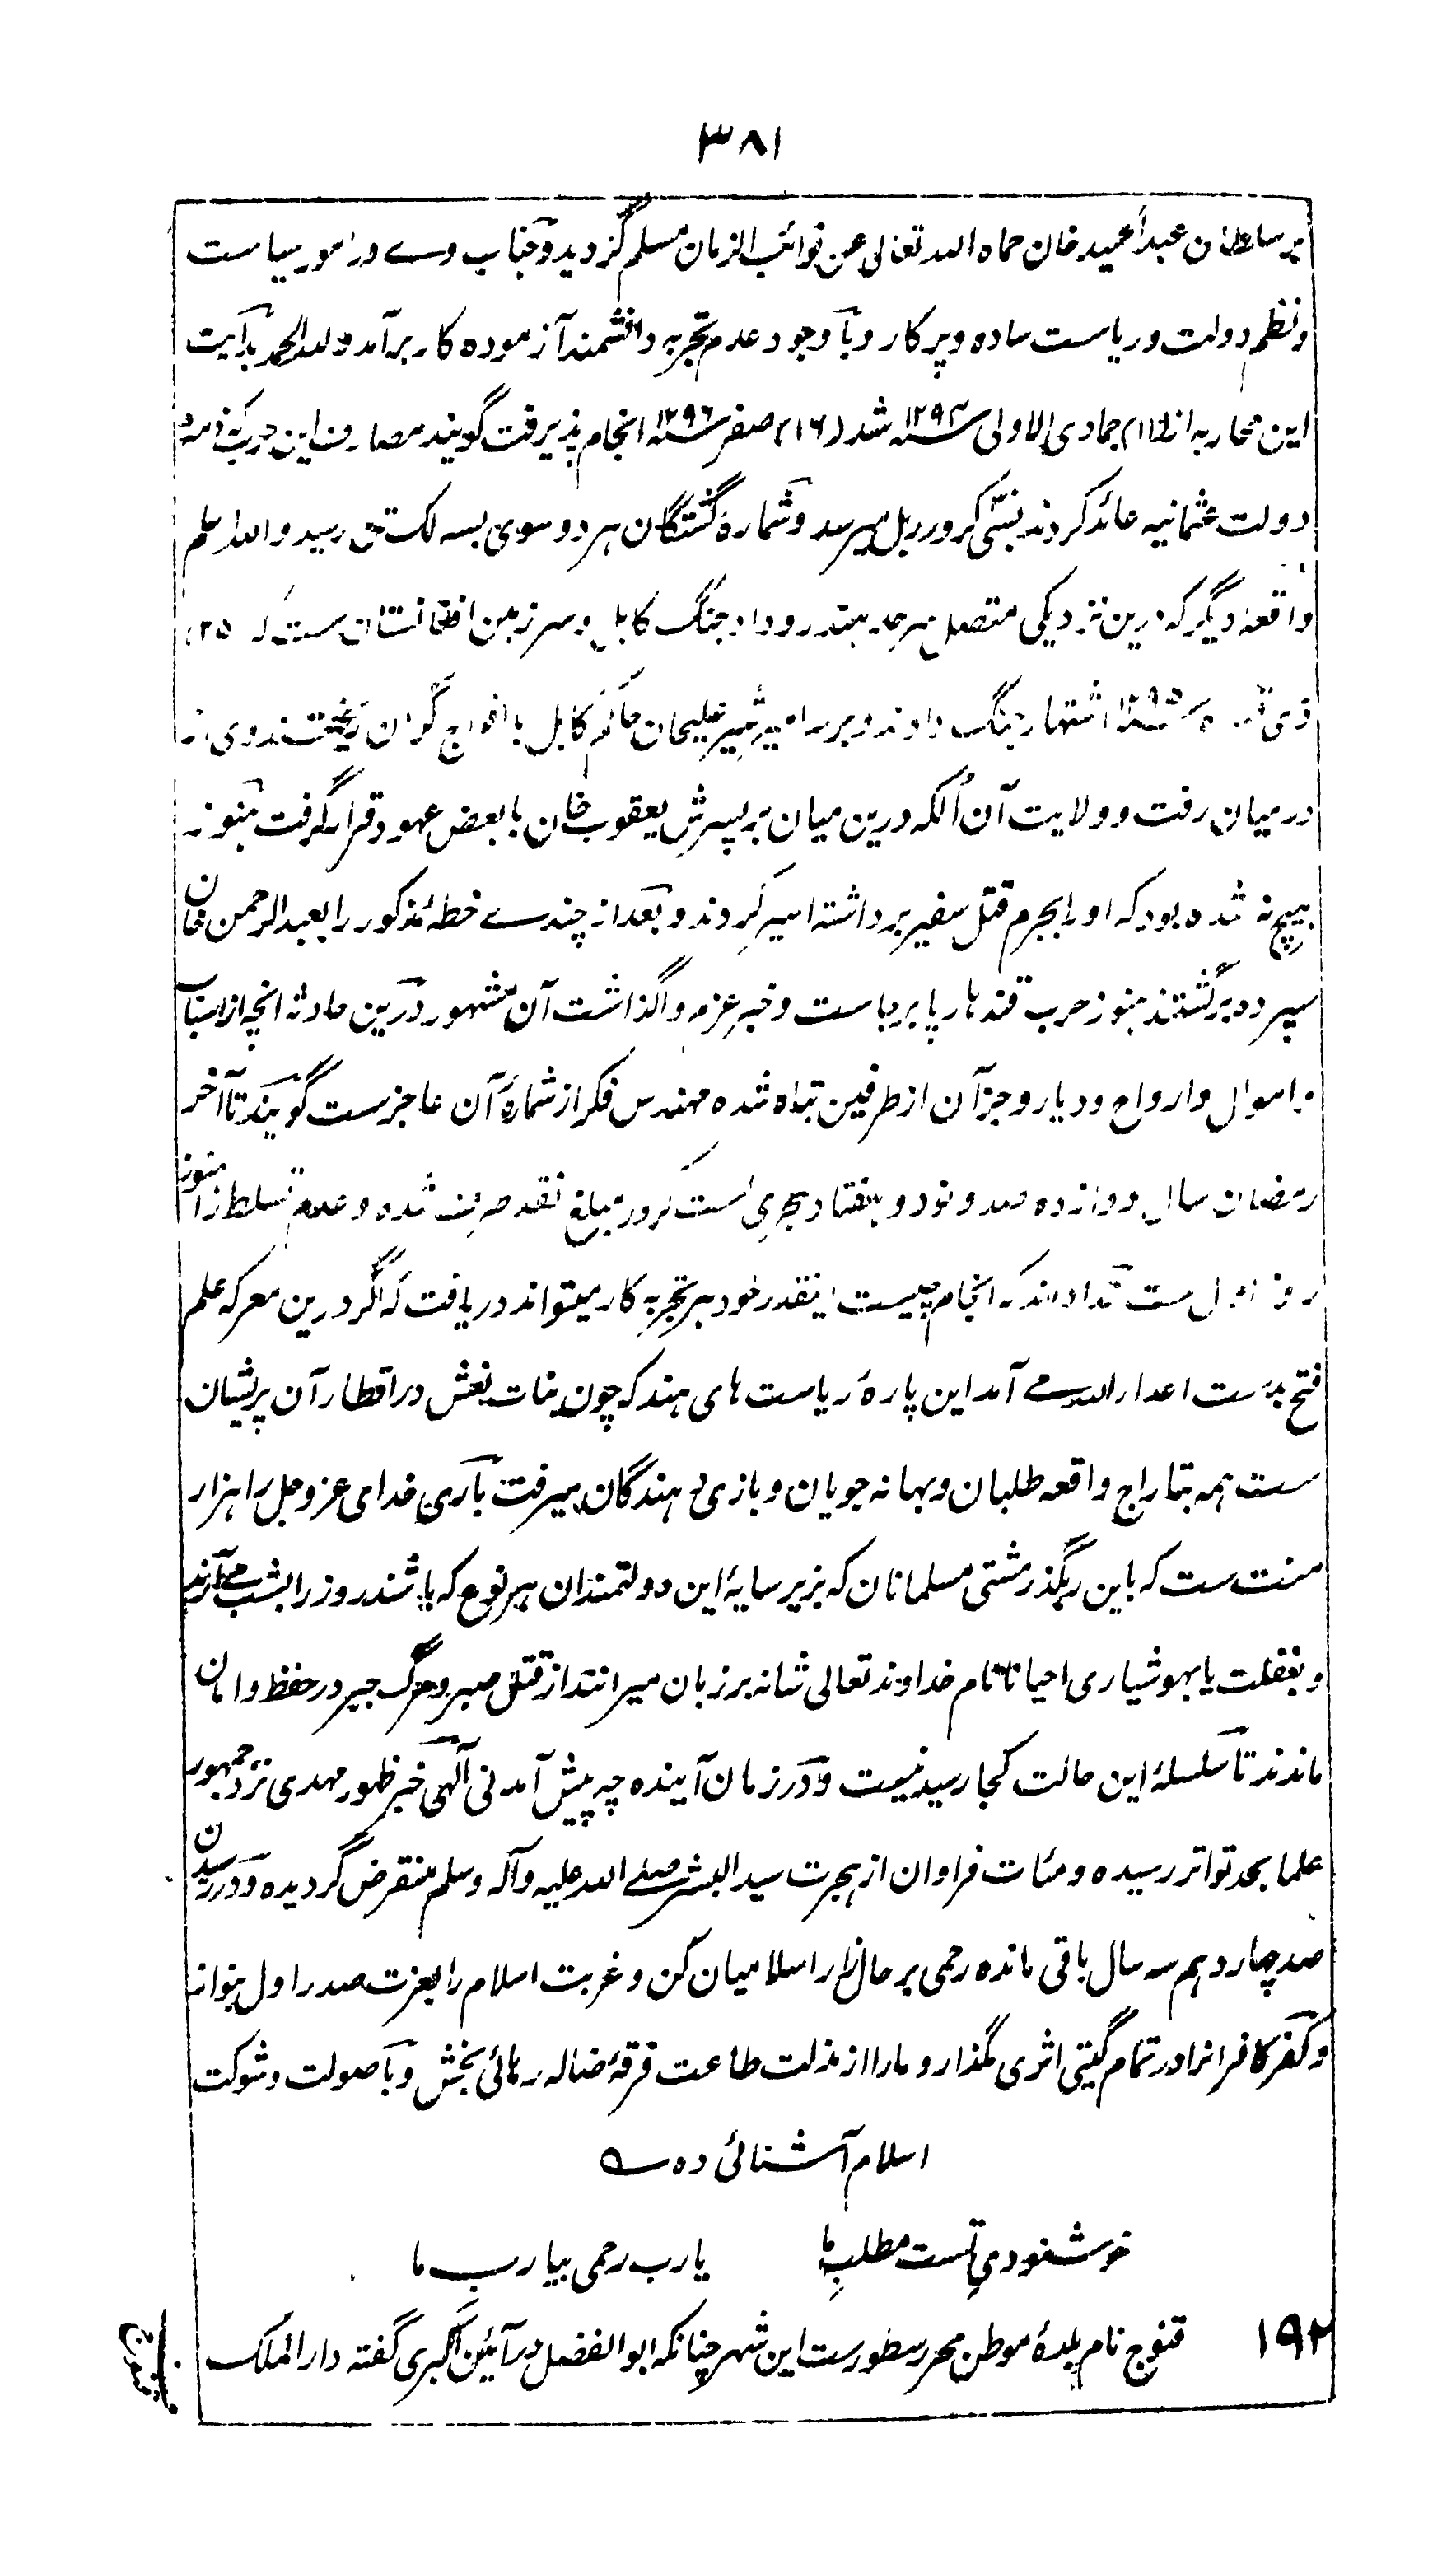 ۳۸۱
بر سلطان عبدالحمید خان حماه الله تعالی عن نوائب الزمان مسلم گردید و جناب وے در امور سیاست
و نظم دولت و ریاست ساده و پرکار و با وجود عدم تجربه دانشمند آزموده کار برآمد ولله الحمد بدایت
این محاربه از (۱۱) جمادی الاولی ۱۲۹۳ شد (۱۶) صفر ۱۲۹۶ انجام پذیرفت گویند مصارف این حرب که ذمه
دولت عثمانیه عائد کردند کرور ربل میرسد و شمارهٔ کشتگان هر دو سوی بسه لک تن رسید والله اعلم
واقعه دیگر که درین نزدیکی متصل سرحد هند رو داد جنگ کابل و سرزمین افغانستان ست که ۲۵
ذی ۱۲۹۵ اشتهار جنگ دادند و بر سر امیر شیر علیخان حاکم کابل با افواج گران ریختند وی
در میان رفت و ولایت آن الکه درین میان بر پسرش یعقوب خان با بعض عهود قرار گرفت هنوز
هیچ نه شده بود که او را بجرم قتل سفیر برداشته اسیر کردند و بعد از چندے خطهٔ مذکور را بعبدالرحمن خان
سپرده برگشتند هنوز حرب قندهار پا برجاست و خبر عزم واگذاشت آن مشهور درین حادثه انچه از اسباب
و اموال و ارواح و دیار و جز آن از طرفین تباه شده مهندس فکر از شمارهٔ آن عاجز ست گویند تا آخر
رمضان سال دوازده صد و نود و هفتاد هجری کرور مبلغ نقد صرف شده و عدم تسلط هنوز
روز اول ست تا انجام چیست اینقدر خود هر تجربه کار میتواند دریافت که اگر درین معرکه علم
فتح بدست اعداء الله مے آمد این پارهٔ ریاست های هند که چون بنات نعش در اقطار آن پریشان
ست همه بتاراج واقعه طلبان و بهانه جویان و بازی دهندگان میرفت باری خدای عز و جل را هزار
منت ست که باین رهگذر مشتی مسلمانان که بزیر سایهٔ این دولتمندان بهر نوع که باشند روز را بشب مے آرند
و بغفلت یا بهوشیاری احیانا نام خداوند تعالی شانه بر زبان میرانند از قتل صبر و مرگ جبر در حفظ و امان
ماندند تا سلسلهٔ این حالت کجا رسیدنیست و در زمان آینده چه پیش آمدنی الٰهی خبر ظهور مهدی نزد جمهور
علما بحد تواتر رسیده و مئات فراوان از هجرت سید البشر صلے الله علیه وآله وسلم منقرض گردیده و در رسیدن
صد چهاردهم سه سال باقی مانده رحمی بر حال زار اسلامیان کن و غربت اسلام را بعزت صدر اول بنواز
و کفر کافرانرا در تمام گیتی اثری مگذار و مارا از مذلت طاعت فرقهٔ ضاله رهائی بخش و با صولت و شوکت
اسلام آشنائی ده ؎
خوشنودی تست مطلب ما یا رب رحمی بیا رب ما
۱۹۲ قنوج نام بلدهٔ موطن محرر سطور ست این شهر چنانکه ابوالفضل در آئین اکبری گفته دار الملک
قنوج